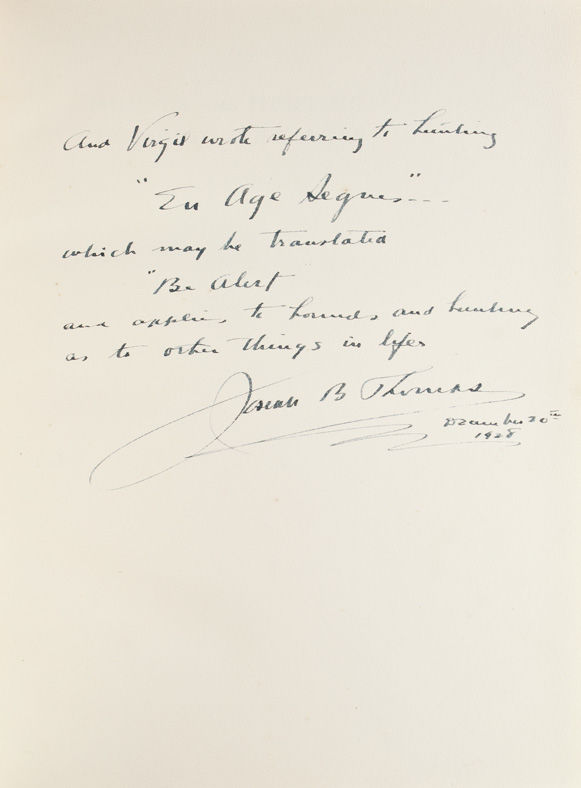 And Virgil wrote referring to hunting
"En Age Segnes" ---
which may be translated
"Be Alert
and applies to hounds and hunting
as to other things in life
Joseph B Thomas
December 20th
1928